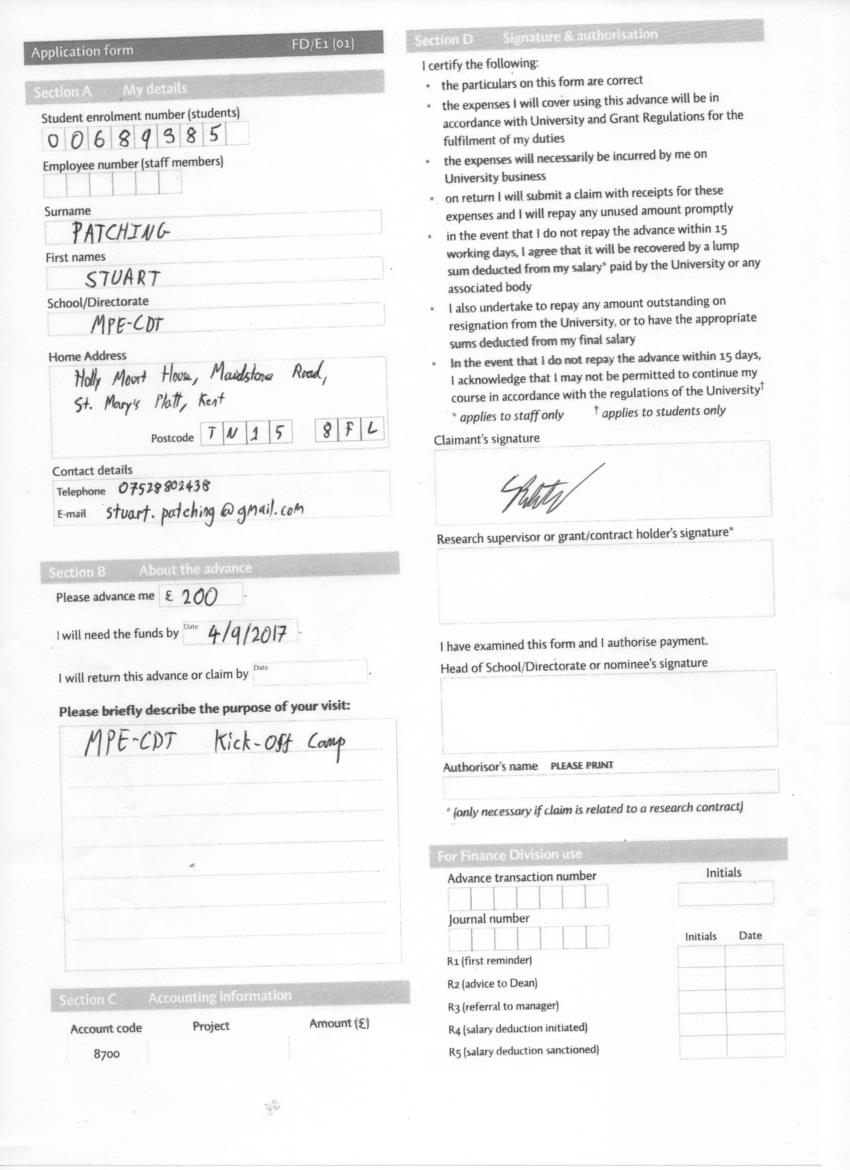 Application form FD/E1 (01)
Section A My details
Student enrolment number (students)
00689385
Employee number (staff members)
Surname
PATCHING
First names
STUART
School/Directorate
MPE-CDT
Home Address
Holly Mount House, Maidstone Road,
St. Mary's Platt, Kent
Postcode TN15 8FL
Contact details
Telephone 07528802438
E-mail stuart.patching@gmail.com
Section B About the advance
Please advance me £ 200.
I will need the funds by Date 4/9/2017.
I will return this advance or claim by Date.
Please briefly describe the purpose of your visit:
MPE-CDT Kick-Off Camp
Section C Accounting information
Account code Project Amount (£)
8700
Section D Signature & authorisation
I certify the following:
• the particulars on this form are correct
• the expenses I will cover using this advance will be in
accordance with University and Grant Regulations for the
fulfilment of my duties
• the expenses will necessarily be incurred by me on
University business
• on return I will submit a claim with receipts for these
expenses and I will repay any unused amount promptly
• in the event that I do not repay the advance within 15
working days, I agree that it will be recovered by a lump
sum deducted from my salary* paid by the University or any
associated body
• I also undertake to repay any amount outstanding on
resignation from the University, or to have the appropriate
sums deducted from my final salary
• In the event that I do not repay the advance within 15 days,
I acknowledge that I may not be permitted to continue my
course in accordance with the regulations of the University†
* applies to staff only † applies to students only
Claimant's signature
Research supervisor or grant/contract holder's signature*
I have examined this form and I authorise payment.
Head of School/Directorate or nominee's signature
Authorisor's name PLEASE PRINT
* (only necessary if claim is related to a research contract)
For Finance Division use
Advance transaction number Initials
Journal number
Initials Date
R1 (first reminder)
R2 (advice to Dean)
R3 (referral to manager)
R4 (salary deduction initiated)
R5 (salary deduction sanctioned)